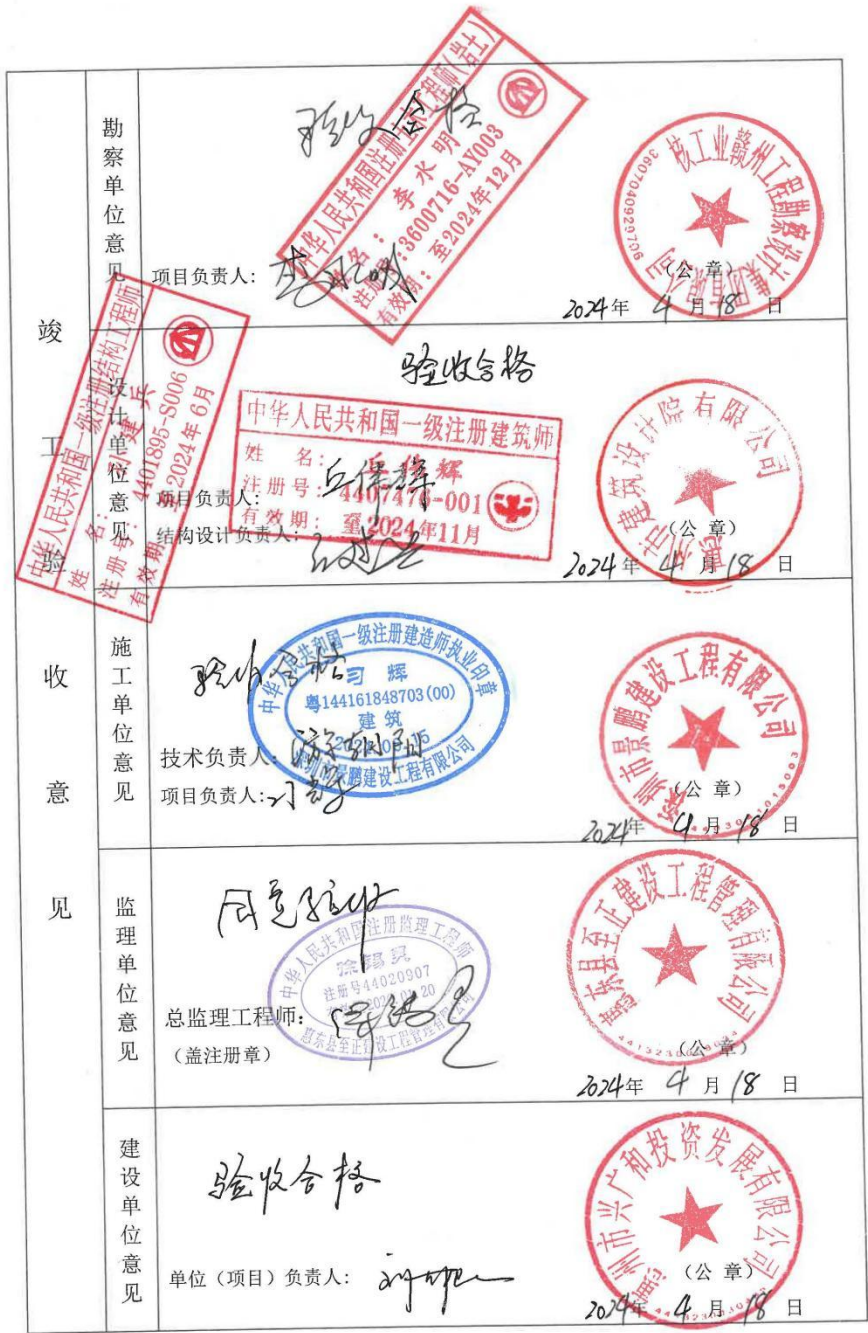 竣工验收意见
勘察单位意见
验收合格
中华人民共和国注册土木工程师(岩土)
姓名：李水明
注册号：3600716-AY003
有效期：至2024年12月
项目负责人：李水明
核工业赣州工程勘察设计集团有限公司
3607040920790
(公 章)
2024年 4月18日
设计单位意见
验收合格
中华人民共和国一级注册结构工程师
姓 名：建兵
注册号：4401895-S006
有效期：至2024年6月
中华人民共和国一级注册建筑师
姓 名：丘伟辉
注册号：4407474-001
有效期：至2024年11月
项目负责人：丘伟辉
结构设计负责人：
惠州市建筑设计院有限公司
(公 章)
2024年 4月18日
施工单位意见
验收合格
中华人民共和国一级注册建造师执业印章
习辉
粤144161848703(00)
建筑
深圳市景鹏建设工程有限公司
技术负责人：游朝阳
项目负责人：习辉
深圳市景鹏建设工程有限公司
(公 章)
2024年 4月18日
监理单位意见
同意验收
中华人民共和国注册监理工程师
注册号44020907
惠东县至正建设工程管理有限公司
总监理工程师：
(盖注册章)
惠东县至正建设工程管理有限公司
(公 章)
2024年 4月18日
建设单位意见
验收合格
单位（项目）负责人：
惠州市兴广和投资发展有限公司
(公 章)
2024年 4月18日